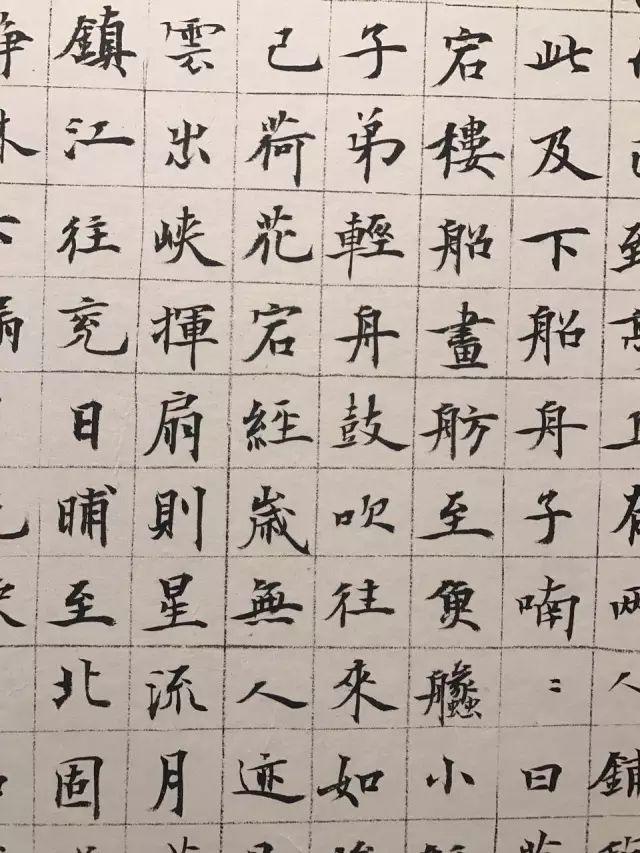 人鋪
此及下船舟子喃〻曰
宕樓船畫舫至魚小
子弟輕舟鼓吹往來如
己荷花宕經歲無人迹
雲出峽揮扇則星流月
鎮江往兗日晡至北固